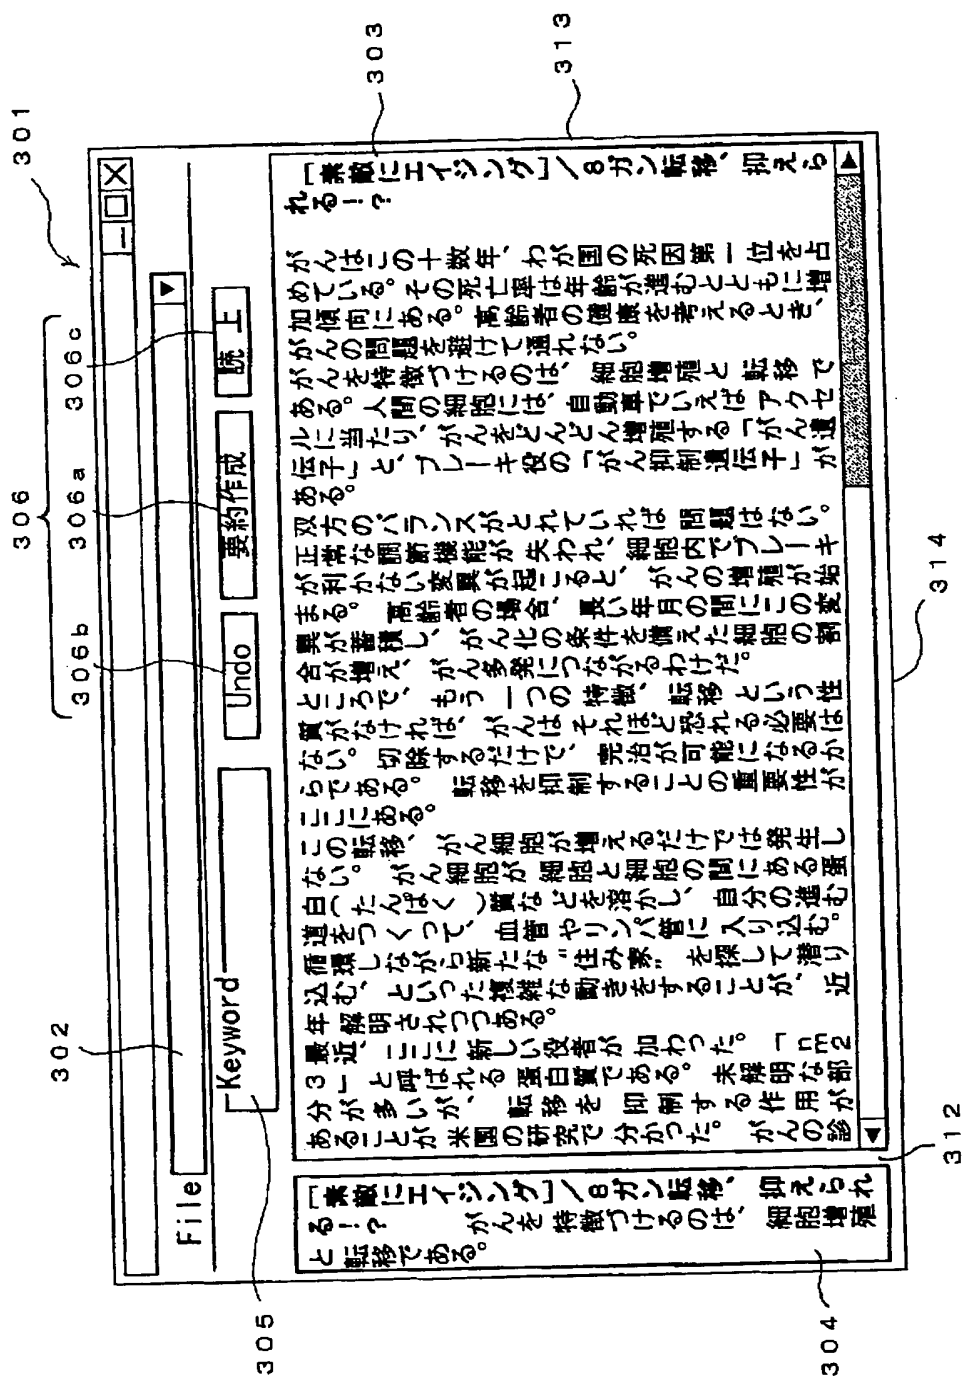 301
302
File
306
306b
306a
306c
305
Keyword
Undo
要約作成
読 上
303
［素敵にエイジング］／８ガン転移、抑えら
れる！？
がんはこの十数年、わが国の死因第一位を占
めている。その死亡率は年齢が進むとともに増
加傾向にある。高齢者の健康を考えるとき、
がんの問題を避けて通れない。
がんを特徴づけるのは、細胞増殖と転移で
ある。人間の細胞には、自動車でいえばアクセ
ルに当たり、がんをどんどん増殖する「がん遺
伝子」と、ブレーキ役の「がん抑制遺伝子」が
ある。
双方のバランスがとれていれば問題はない。
正常な調節機能が失われ、細胞内でブレーキ
が利かない変異が起こると、がんの増殖が始
まる。高齢者の場合、長い年月の間にこの変
異が蓄積し、がん化の条件を備えた細胞の割
合が増え、がん多発につながるわけだ。
ところで、もう一つの特徴、転移という性
質がなければ、がんはそれほど恐れる必要は
ない。切除するだけで、完治が可能になるか
らである。転移を抑制することの重要性が
ここにある。
この転移、がん細胞が増えるだけでは発生し
ない。がん細胞が細胞と細胞の間にある蛋
白（たんぱく）質などを溶かし、自分の進む
道をつくって、血管やリンパ管に入り込む。
循環しながら新たな“住み家”を探して潜り
込む、といった複雑な動きをすることが、近
年解明されつつある。
最近、ここに新しい役者が加わった。「ｎｍ２
３」と呼ばれる蛋白質である。未解明な部
分が多いが、転移を抑制する作用が
あることが米国の研究で分かった。がんの診
［素敵にエイジング］／８ガン転移、抑えられ
る！？ がんを特徴づけるのは、細胞増殖
と転移である。
304
312
314
313